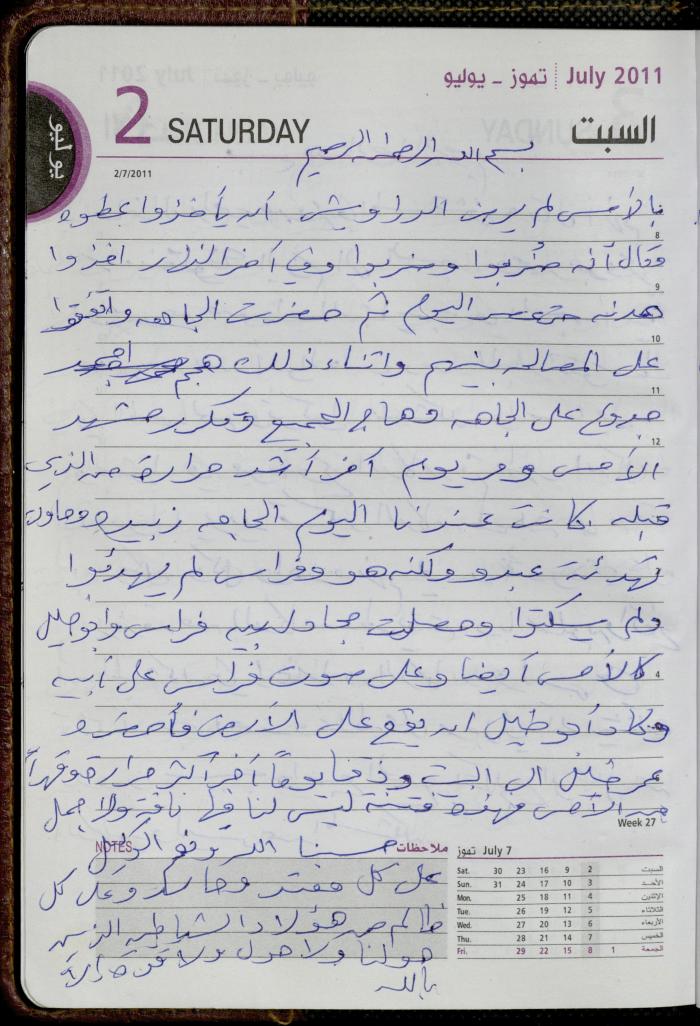 July 2011 | تموز - يوليو
2 SATURDAY السبت
يوليو
2/7/2011
بسم الله الرحمن الرحيم
بالأمس لم يرض الدراويش أن يأخذوا عطوه
8
فقال أنه ضُربوا وضربوا وفي آخر النهار اخذوا
9
هدنه حتى عصر اليوم ثم حضرت الجاهه واتفقوا
10
على المصالحه بينهم واثناء ذلك هجم
11
جدوع على الجاهه وهاج الجميع وتكرر مشهد
12
الأمس ومر يوم آخر أشد حرارة من الذي
قبله كانت عندنا اليوم الحاجه زبيده وحاولت
تهدئة عبدو ولكنه هو وفراس لم يهدئوا
ولم يسكتوا وحصلت مجادله بين فراس وابو خليل
كالأمس أيضا وعلى صوت فراس على أبيه
4
وكاد أبو خليل ان يقع على الأرض فأحضره
عمر خليل الى البيت وذقنا يوماً آخر أكثر مرارة وقهراً
من الأمس فهذه فتنة ليس لنا فيها ناقة ولا جمل
Week 27
حسبنا الله ونعم الوكيل
NOTES ملاحظات
على كل مفتر وحاسد وعلى كل
ظالم من هؤلاء الشياطين الذين
حولنا ولا حول ولا قوة إلا
بالله
July 7 تموز
Sat. 30 23 16 9 2 السبت
Sun. 31 24 17 10 3 الأحد
Mon. 25 18 11 4 الإثنين
Tue. 26 19 12 5 الثلاثاء
Wed. 27 20 13 6 الأربعاء
Thu. 28 21 14 7 الخميس
Fri. 29 22 15 8 1 الجمعة